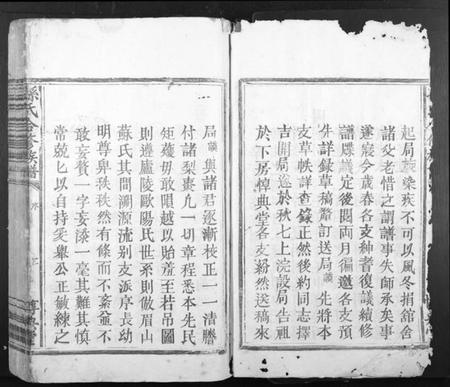 起局義染疾不可以風冬捐舘舍
諸父老惜之謂譜事失師承矣事
遂寢今歲春各支種者復議續修
譜牒議定後閱両月徧邀各支預
先詳録草稿齎訂送局 先將本
支草帙詳查錄正然後約同志擇
吉開局迄於秋七上浣設局告祖
於下房悼典堂各支紛然送稿來
局 與諸君逐漸校正一一清謄
付諸梨棗凡一切章程悉本先民
矩矱毋敢隕越以貽羞至若吊圖
則遵廬陵歐陽氏世系則倣眉山
蘇氏其間溯源流别支派序長幼
明尊卑秩秩然有條而不紊並不
敢妄贅一字妄漆一毫其難其慎
常兢匕以自持爰舉公正敏練之
孫氏
族譜
序